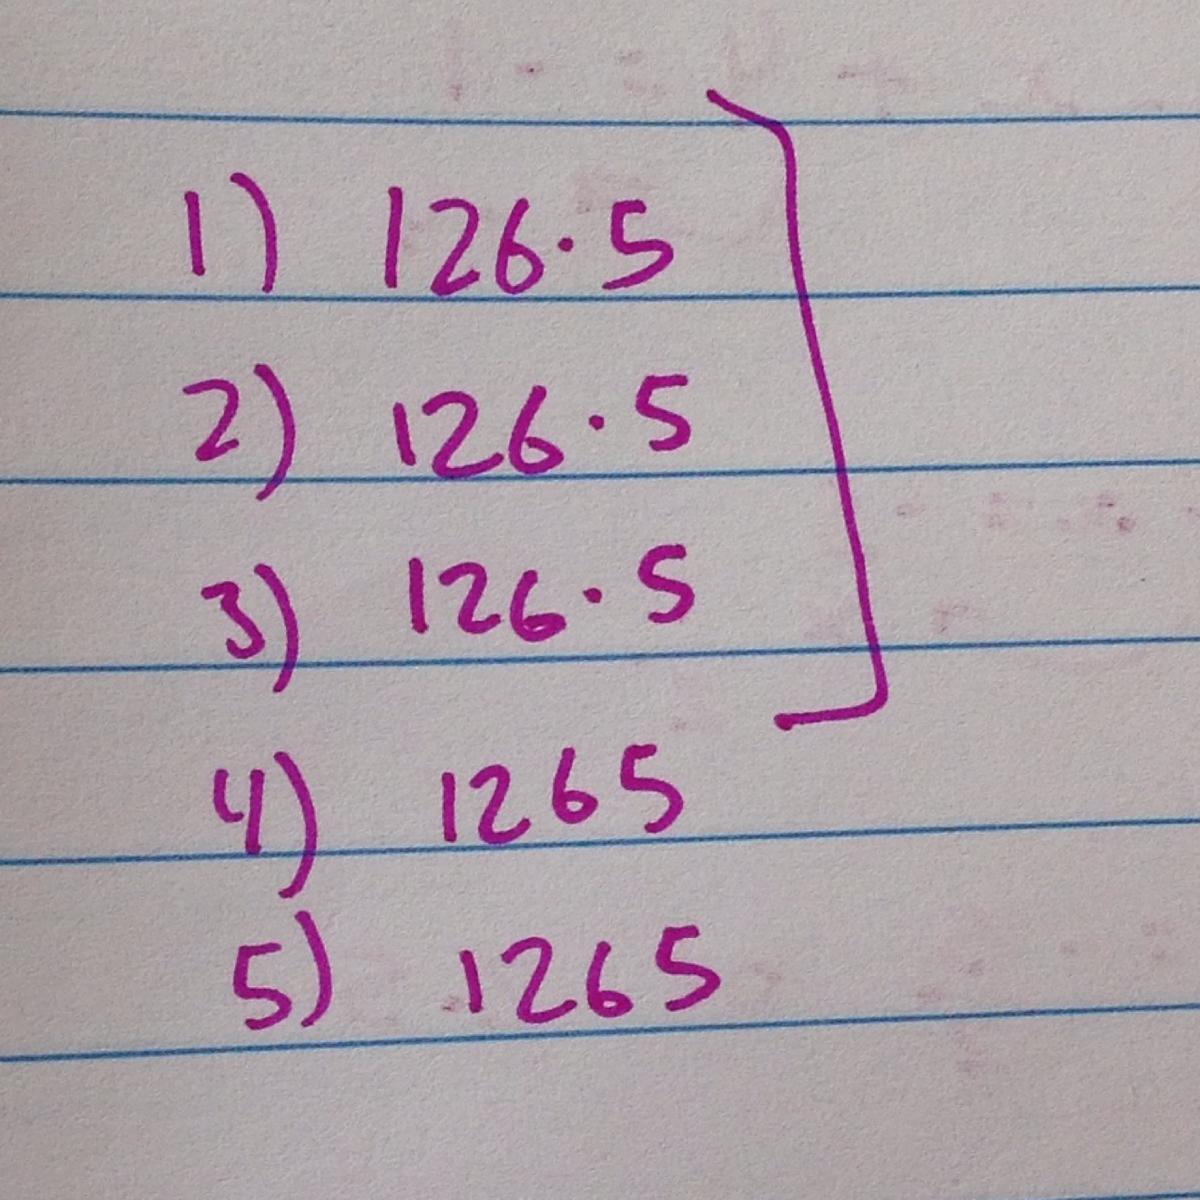 1) 126.5
2) 126.5
3) 126.5
4) 1265
5) 1265